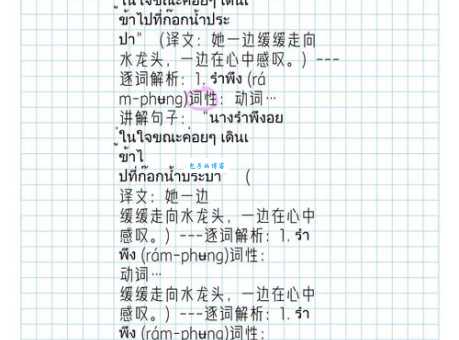 ในใจขณะค่อยๆ เดินเ
ข้าไปที่ก๊อกน้ำประ
ปา" (译文：她一边缓缓走向
水龙头，一边在心中感叹。) ---
逐词解析：1. รำพึง (rá
m-phʉng)词性：动词…
讲解句子： "นางรำพึงอย
ู่ในใจขณะค่อยๆ เดินเ
ข้าไ
ปที่ก๊อกน้ำบระบา (
译文：她一边
缓缓走向水龙头，一边在心中
感叹。) ---逐词解析：1. รำ
พึง (rám-phʉng)词性：
动词…
缓缓走向水龙头，一边在心中
感叹。) ---逐词解析：1. รำ
พึง (rám-phʉng)词性：